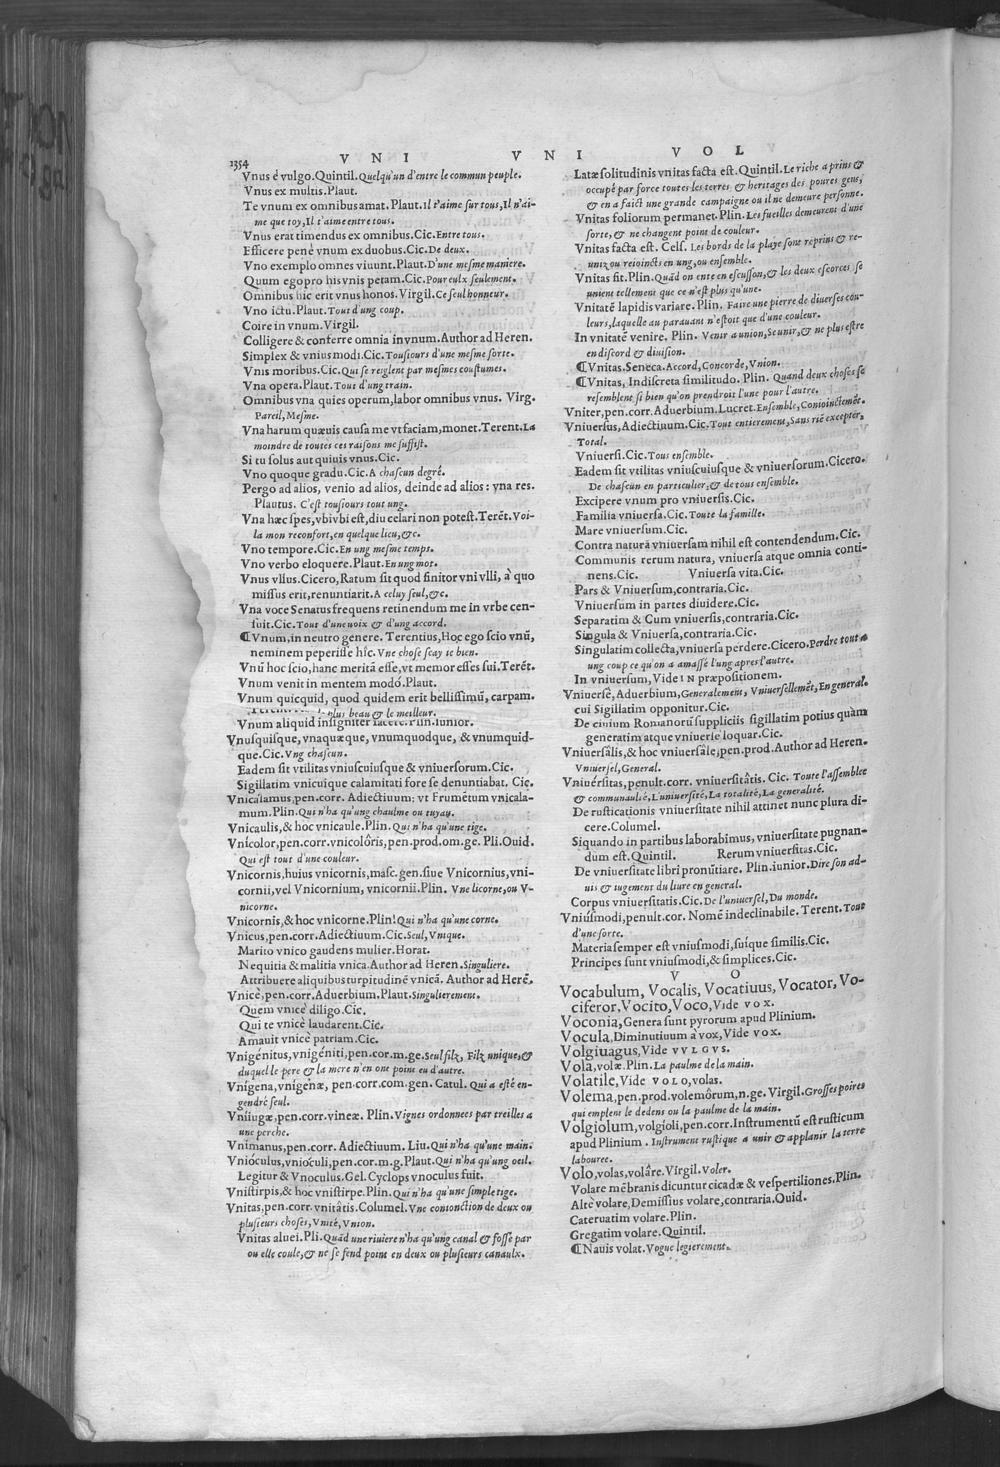 1354
V N I V N I V O L
Vnus è vulgo. Quintil. Quelqu'un d'entre le commun peuple.
Vnus ex multis. Plaut.
Te vnum ex omnibus amat. Plaut. Il t'aime sur tous, Il n'ai-
me que toy, Il t'aime entre tous.
Vnus erat timendus ex omnibus. Cic. Entre tous.
Efficere penè vnum ex duobus. Cic. De deux.
Vno exemplo omnes viuunt. Plaut. D'une mesme maniere.
Quum ego pro his vnis petam. Cic. Pour eulx seulement.
Omnibus hic erit vnus honos. Virgil. Ce seul honneur.
Vno ictu. Plaut. Tout d'ung coup.
Coire in vnum. Virgil.
Colligere & conferre omnia in vnum. Author ad Heren.
Simplex & vnius modi. Cic. Tousiours d'une mesme sorte.
Vnis moribus. Cic. Qui se reiglent par mesmes coustumes.
Vna opera. Plaut. Tout d'ung train.
Omnibus vna quies operum, labor omnibus vnus. Virg.
Pareil, Mesme.
Vna harum quæuis causa me vt faciam, monet. Terent. La
moindre de toutes ces raisons me suffist.
Si tu solus aut quiuis vnus. Cic.
Vno quoque gradu. Cic. A chascun degré.
Pergo ad alios, venio ad alios, deinde ad alios: vna res.
Plautus. C'est tousiours tout ung.
Vna hæc spes, vbi vbi est, diu celari non potest. Terẽt. Voi-
la mon reconfort, en quelque lieu, &c.
Vno tempore. Cic. En ung mesme temps.
Vno verbo eloquere. Plaut. En ung mot.
Vnus vllus. Cicero, Ratum sit quod finitor vni vlli, à quo
missus erit, renuntiarit. A celuy seul, &c.
Vna voce Senatus frequens retinendum me in vrbe cen-
suit. Cic. Tout d'une uoix & d'ung accord.
¶ Vnum, in neutro genere. Terentius, Hoc ego scio vnũ,
neminem peperisse hîc. Vne chose scay ie bien.
Vnũ hoc scio, hanc meritã esse, vt memor esses sui. Terẽt.
Vnum venit in mentem modó. Plaut.
Vnum quicquid, quod quidem erit bellissimũ, carpam.
plus beau & le meilleur.
Vnum aliquid insigniter facere. Plin. iunior.
Vnusquisque, vnaquæque, vnumquodque, & vnumquid-
que. Cic. Vng chascun.
Eadem sit vtilitas vniuscuiusque & vniuersorum. Cic.
Sigillatim vnicuique calamitati fore se denuntiabat. Cic.
Vnicalamus, pen. corr. Adiectiuum: vt Frumẽtum vnicala-
mum. Plin. Qui n'ha qu'ung chaulme ou tuyau.
Vnicaulis, & hoc vnicaule. Plin. Qui n'ha qu'une tige.
Vnicolor, pen. corr. vnicolôris, pen. prod. om. ge. Pli. Ouid.
Qui est tout d'une couleur.
Vnicornis, huius vnicornis, masc. gen. siue Vnicornius, vni-
cornii, vel Vnicornium, vnicornii. Plin. Vne licorne, ou V-
nicorne.
Vnicornis, & hoc vnicorne. Plin. Qui n'ha qu'une corne.
Vnicus, pen. corr. Adiectiuum. Cic. Seul, Vnique.
Marito vnico gaudens mulier. Horat.
Nequitia & malitia vnica. Author ad Heren. Singuliere.
Attribuere aliquibus turpitudinẽ vnicã. Author ad Herẽ.
Vnicè, pen. corr. Aduerbium. Plaut. Singulierement.
Quem vnicè diligo. Cic.
Qui te vnicè laudarent. Cic.
Amauit vnicè patriam. Cic.
Vnigénitus, vnigéniti, pen. cor. m. ge. Seul filz, Filz unique, &
duquel le pere & la mere n'en ont point eu d'autre.
Vnígena, vnígenæ, pen. corr. com. gen. Catul. Qui a esté en-
gendré seul.
Vniiugæ, pen. corr. vineæ. Plin. Vignes ordonnees par treilles a
une perche.
Vnimanus, pen. corr. Adiectiuum. Liu. Qui n'ha qu'une main.
Vnióculus, vnióculi, pen. cor. m. g. Plaut. Qui n'ha qu'ung oeil.
Legitur & Vnoculus. Gel. Cyclops vnoculus fuit.
Vnistirpis, & hoc vnistirpe. Plin. Qui n'ha qu'une simple tige.
Vnitas, pen. corr. vnitâtis. Columel. Vne conionction de deux ou
plusieurs choses, Vnité, Vnion.
Vnitas aluei. Pli. Quãd une riuiere n'ha qu'ung canal & fosse par
ou elle coule, & ne se fend point en deux ou plusieurs canaulx.
Latæ solitudinis vnitas facta est. Quintil. Le riche a prins &
occupé par force toutes les terres & heritages des poures gens,
& en a faict une grande campaigne ou il ne demeure personne.
Vnitas foliorum permanet. Plin. Les fueilles demeurent d'une
sorte, & ne changent point de couleur.
Vnitas facta est. Cels. Les bords de la playe sont reprins & re-
uniz ou reioincts en ung, ou ensemble.
Vnitas fit. Plin. Quãd on ente en escusson, & les deux escorces se
unient tellement que ce n'est plus qu'une.
Vnitatẽ lapidis variare. Plin. Faire une pierre de diuerses cou-
leurs, laquelle au parauant n'estoit que d'une couleur.
In vnitatẽ venire. Plin. Venir a union, Se unir, & ne plus estre
en discord & diuision.
¶ Vnitas. Seneca. Accord, Concorde, Vnion.
¶ Vnitas, Indiscreta similitudo. Plin. Quand deux choses se
resemblent si bien qu'on prendroit l'une pour l'autre.
Vniter, pen. corr. Aduerbium. Lucret. Ensemble, Conioinctemẽt.
Vniuersus, Adiectiuum. Cic. Tout entierement, Sans riẽ excepter,
Total.
Vniuersi. Cic. Tous ensemble.
Eadem sit vtilitas vniuscuiusque & vniuersorum. Cicero.
De chascũn en particulier, & de tous ensemble.
Excipere vnum pro vniuersis. Cic.
Familia vniuersa. Cic. Toute la famille.
Mare vniuersum. Cic.
Contra naturã vniuersam nihil est contendendum. Cic.
Communis rerum natura, vniuersa atque omnia conti-
nens. Cic. Vniuersa vita. Cic.
Pars & Vniuersum, contraria. Cic.
Vniuersum in partes diuidere. Cic.
Separatim & Cum vniuersis, contraria. Cic.
Singula & Vniuersa, contraria. Cic.
Singulatim collecta, vniuersa perdere. Cicero. Perdre tout a
ung coup ce qu'on a amassé l'ung apres l'autre.
In vniuersum, Vide IN præpositionem.
Vniuersè, Aduerbium, Generalement, Vniuersellemẽt, En general.
cui Sigillatim opponitur. Cic.
De ciuium Romanorũ suppliciis sigillatim potius quàm
generatim atque vniuersè loquar. Cic.
Vniuersâlis, & hoc vniuersâle, pen. prod. Author ad Heren.
Vniuersel, General.
Vniuérsitas, penult. corr. vniuersitâtis. Cic. Toute l'assemblee
& communaulté, L'uniuersité, La totalité, La generalité.
De rusticationis vniuersitate nihil attinet nunc plura di-
cere. Columel.
Siquando in partibus laborabimus, vniuersitate pugnan-
dum est. Quintil. Rerum vniuersitas. Cic.
De vniuersitate libri pronũtiare. Plin. iunior. Dire son ad-
uis & iugement du liure en general.
Corpus vniuersitatis. Cic. De l'uniuersel, Du monde.
Vniúsmodi, penult. cor. Nomẽ indeclinabile. Terent. Tout
d'une sorte.
Materia semper est vniusmodi, suíque similis. Cic.
Principes sunt vniusmodi, & simplices. Cic.
V O
Vocabulum, Vocalis, Vocatiuus, Vocator, Vo-
ciferor, Vocito, Voco, Vide VOX.
Voconia, Genera sunt pyrorum apud Plinium.
Vocula, Diminutiuum à vox, Vide VOX.
Volgiuagus, Vide VVLGVS.
Vola, volæ. Plin. La paulme de la main.
Volatile, Vide VOLO, volas.
Volema, pen. prod. volemôrum, n. ge. Virgil. Grosses poires
qui emplent le dedens ou la paulme de la main.
Volgiolum, volgioli, pen. corr. Instrumentũ est rusticum
apud Plinium. Instrument rustique a unir & applanir la terre
labouree.
Volo, volas, volâre. Virgil. Voler.
Volare mẽbranis dicuntur cicadæ & vespertiliones. Plin.
Altè volare, Demissius volare, contraria. Ouid.
Cateruatim volare. Plin.
Gregatim volare. Quintil.
¶ Nauis volat. Vogue legierement.